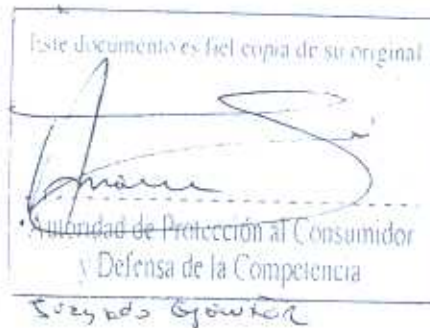 Este documento es fiel copia de su original
Autoridad de Protección al Consumidor
y Defensa de la Competencia
Juzgado Ejecutor